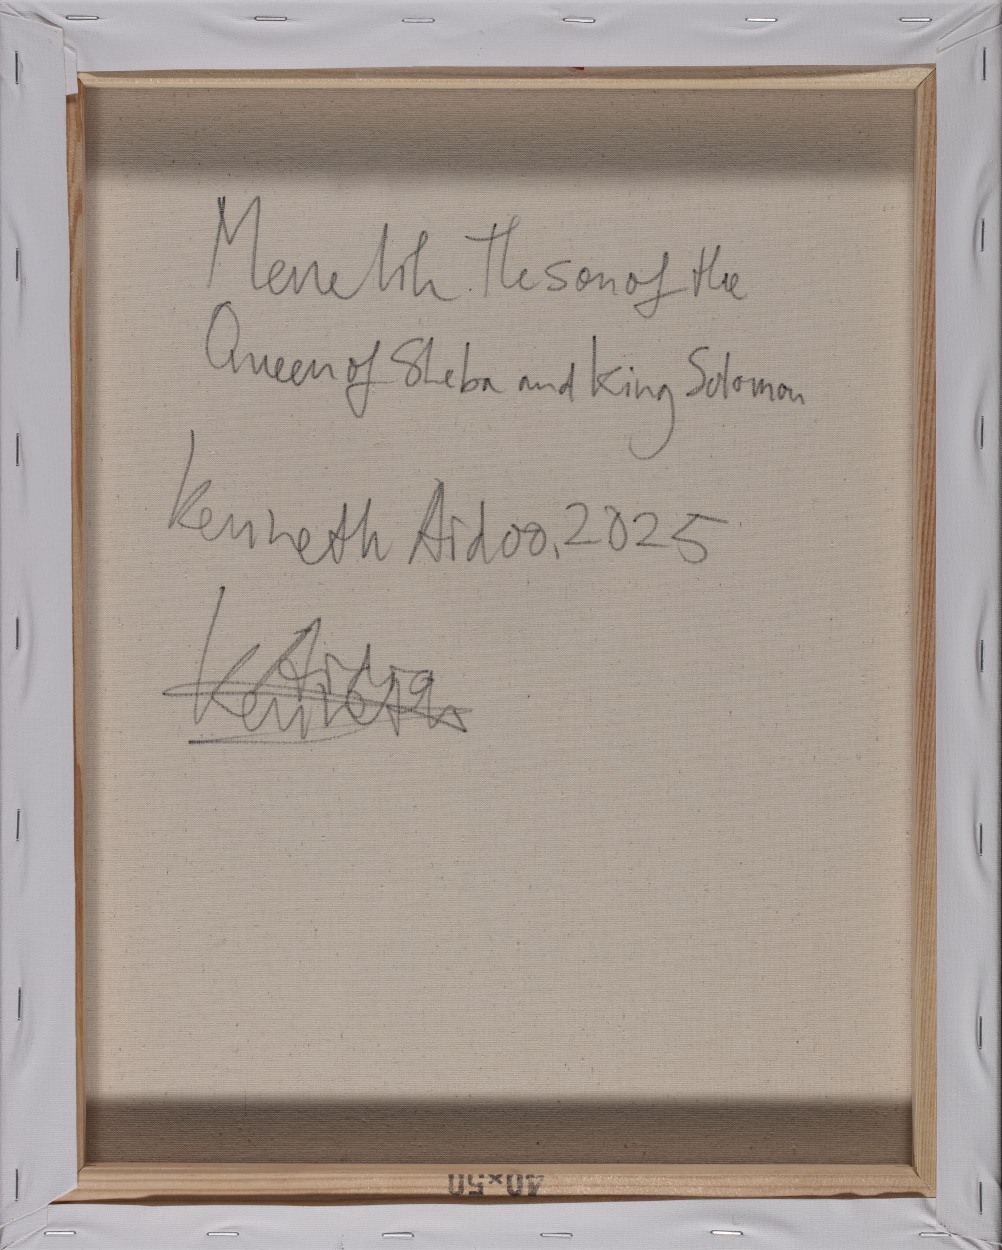 Menelik The son of the
Queen of Sheba and King Solomon
Kenneth Aidoo, 2025
Kenneth Aidoo
40x50